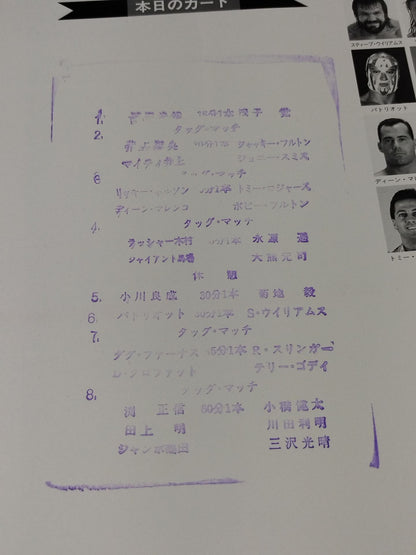 本日のカード
スティーブ・ウイリアムス
パトリオット
ディーン・マ
トミー・
1.
2. タッグ・マッチ
井上 ジャッキー・フルトン
マイティ井上 ジョニー・スミス
3 タッグ・マッチ
リッキー・ 1本 トミー・ロジャース
ディーン・マレンコ ボビー・フルトン
4. タッグ・マッチ
ラッシャー木村 1本 永源 遥
ジャイアント馬場 大熊元司
休 憩
5. 小川良成 30分1本 菊地 毅
6. パトリオット 30分1本 S・ウイリアムス
7. タッグ・マッチ
ダグ・ファーナス 45分1本 R・スリンガー
D・クロファット テリー・ゴディ
8. タッグ・マッチ
渕 正信 60分1本 小橋健太
田上 明 川田利明
ジャンボ鶴田 三沢光晴